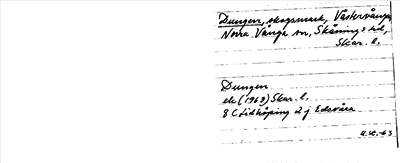 Dungen, skogsmark, Västervånga,
Norra Vånga sn, Skånings hd,
Skar. l.
Dungen
ek (1963) Skar. l.
8 C Lidköping 2 j Edsvära